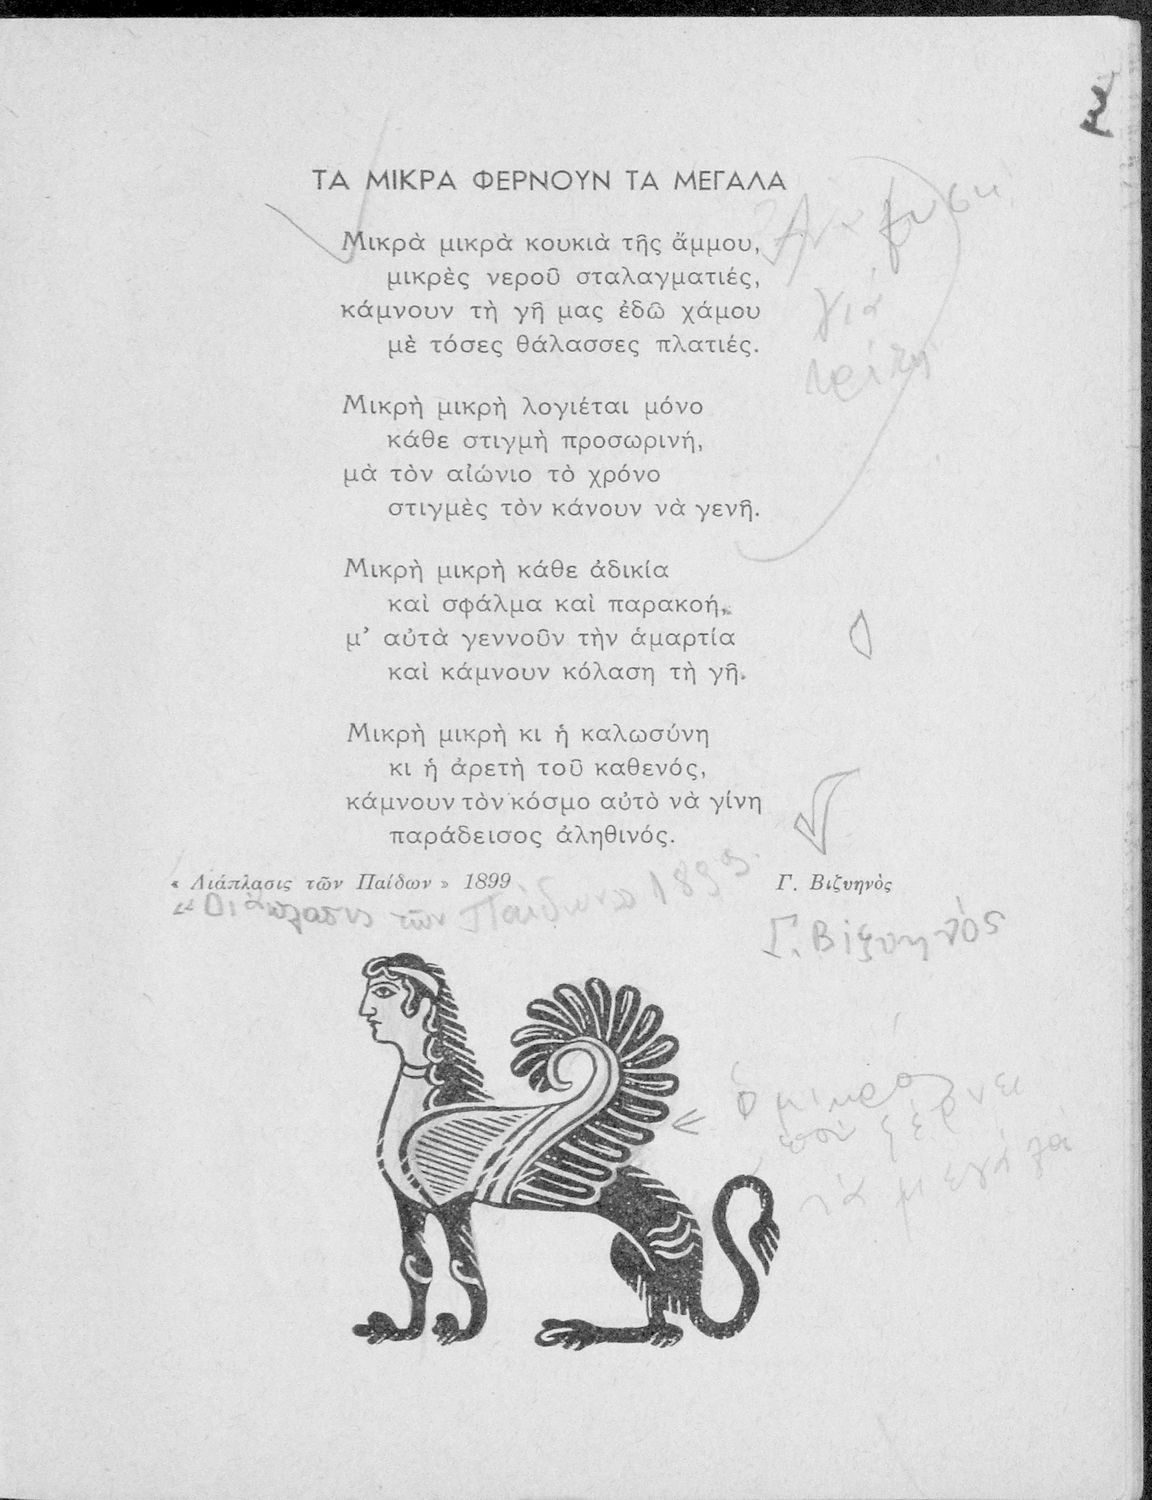 ΤΑ ΜΙΚΡΑ ΦΕΡΝΟΥΝ ΤΑ ΜΕΓΑΛΑ
Μικρὰ μικρὰ κουκιὰ τῆς ἄμμου,
μικρὲς νεροῦ σταλαγματιές,
κάμνουν τὴ γῆ μας ἐδῶ χάμου
μὲ τόσες θάλασσες πλατιές.
γιά
Μικρὴ μικρὴ λογιέται μόνο
κάθε στιγμὴ προσωρινή,
μὰ τὸν αἰώνιο τὸ χρόνο
στιγμὲς τὸν κάνουν νὰ γενῆ.
Μικρὴ μικρὴ κάθε ἀδικία
καὶ σφάλμα καὶ παρακοή,
μ' αὐτὰ γεννοῦν τὴν ἁμαρτία
καὶ κάμνουν κόλαση τὴ γῆ.
Μικρὴ μικρὴ κι ἡ καλωσύνη
κι ἡ ἀρετὴ τοῦ καθενός,
κάμνουν τὸν κόσμο αὐτὸ νὰ γίνη
παράδεισος ἀληθινός.
« Διάπλασις τῶν Παίδων » 1899 Γ. Βιζυηνὸς
«Διάπλασις τῶν Παίδων» 1899
Γ. Βιζυηνὸς
ὁ μικρός
φέρνει
τὰ μεγάλα